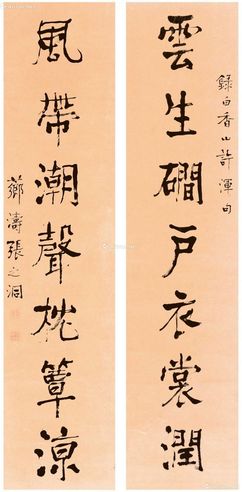 雲生磵戶衣裳潤
錄白香山許渾句
風帶潮聲枕簟涼
薌濤張之洞